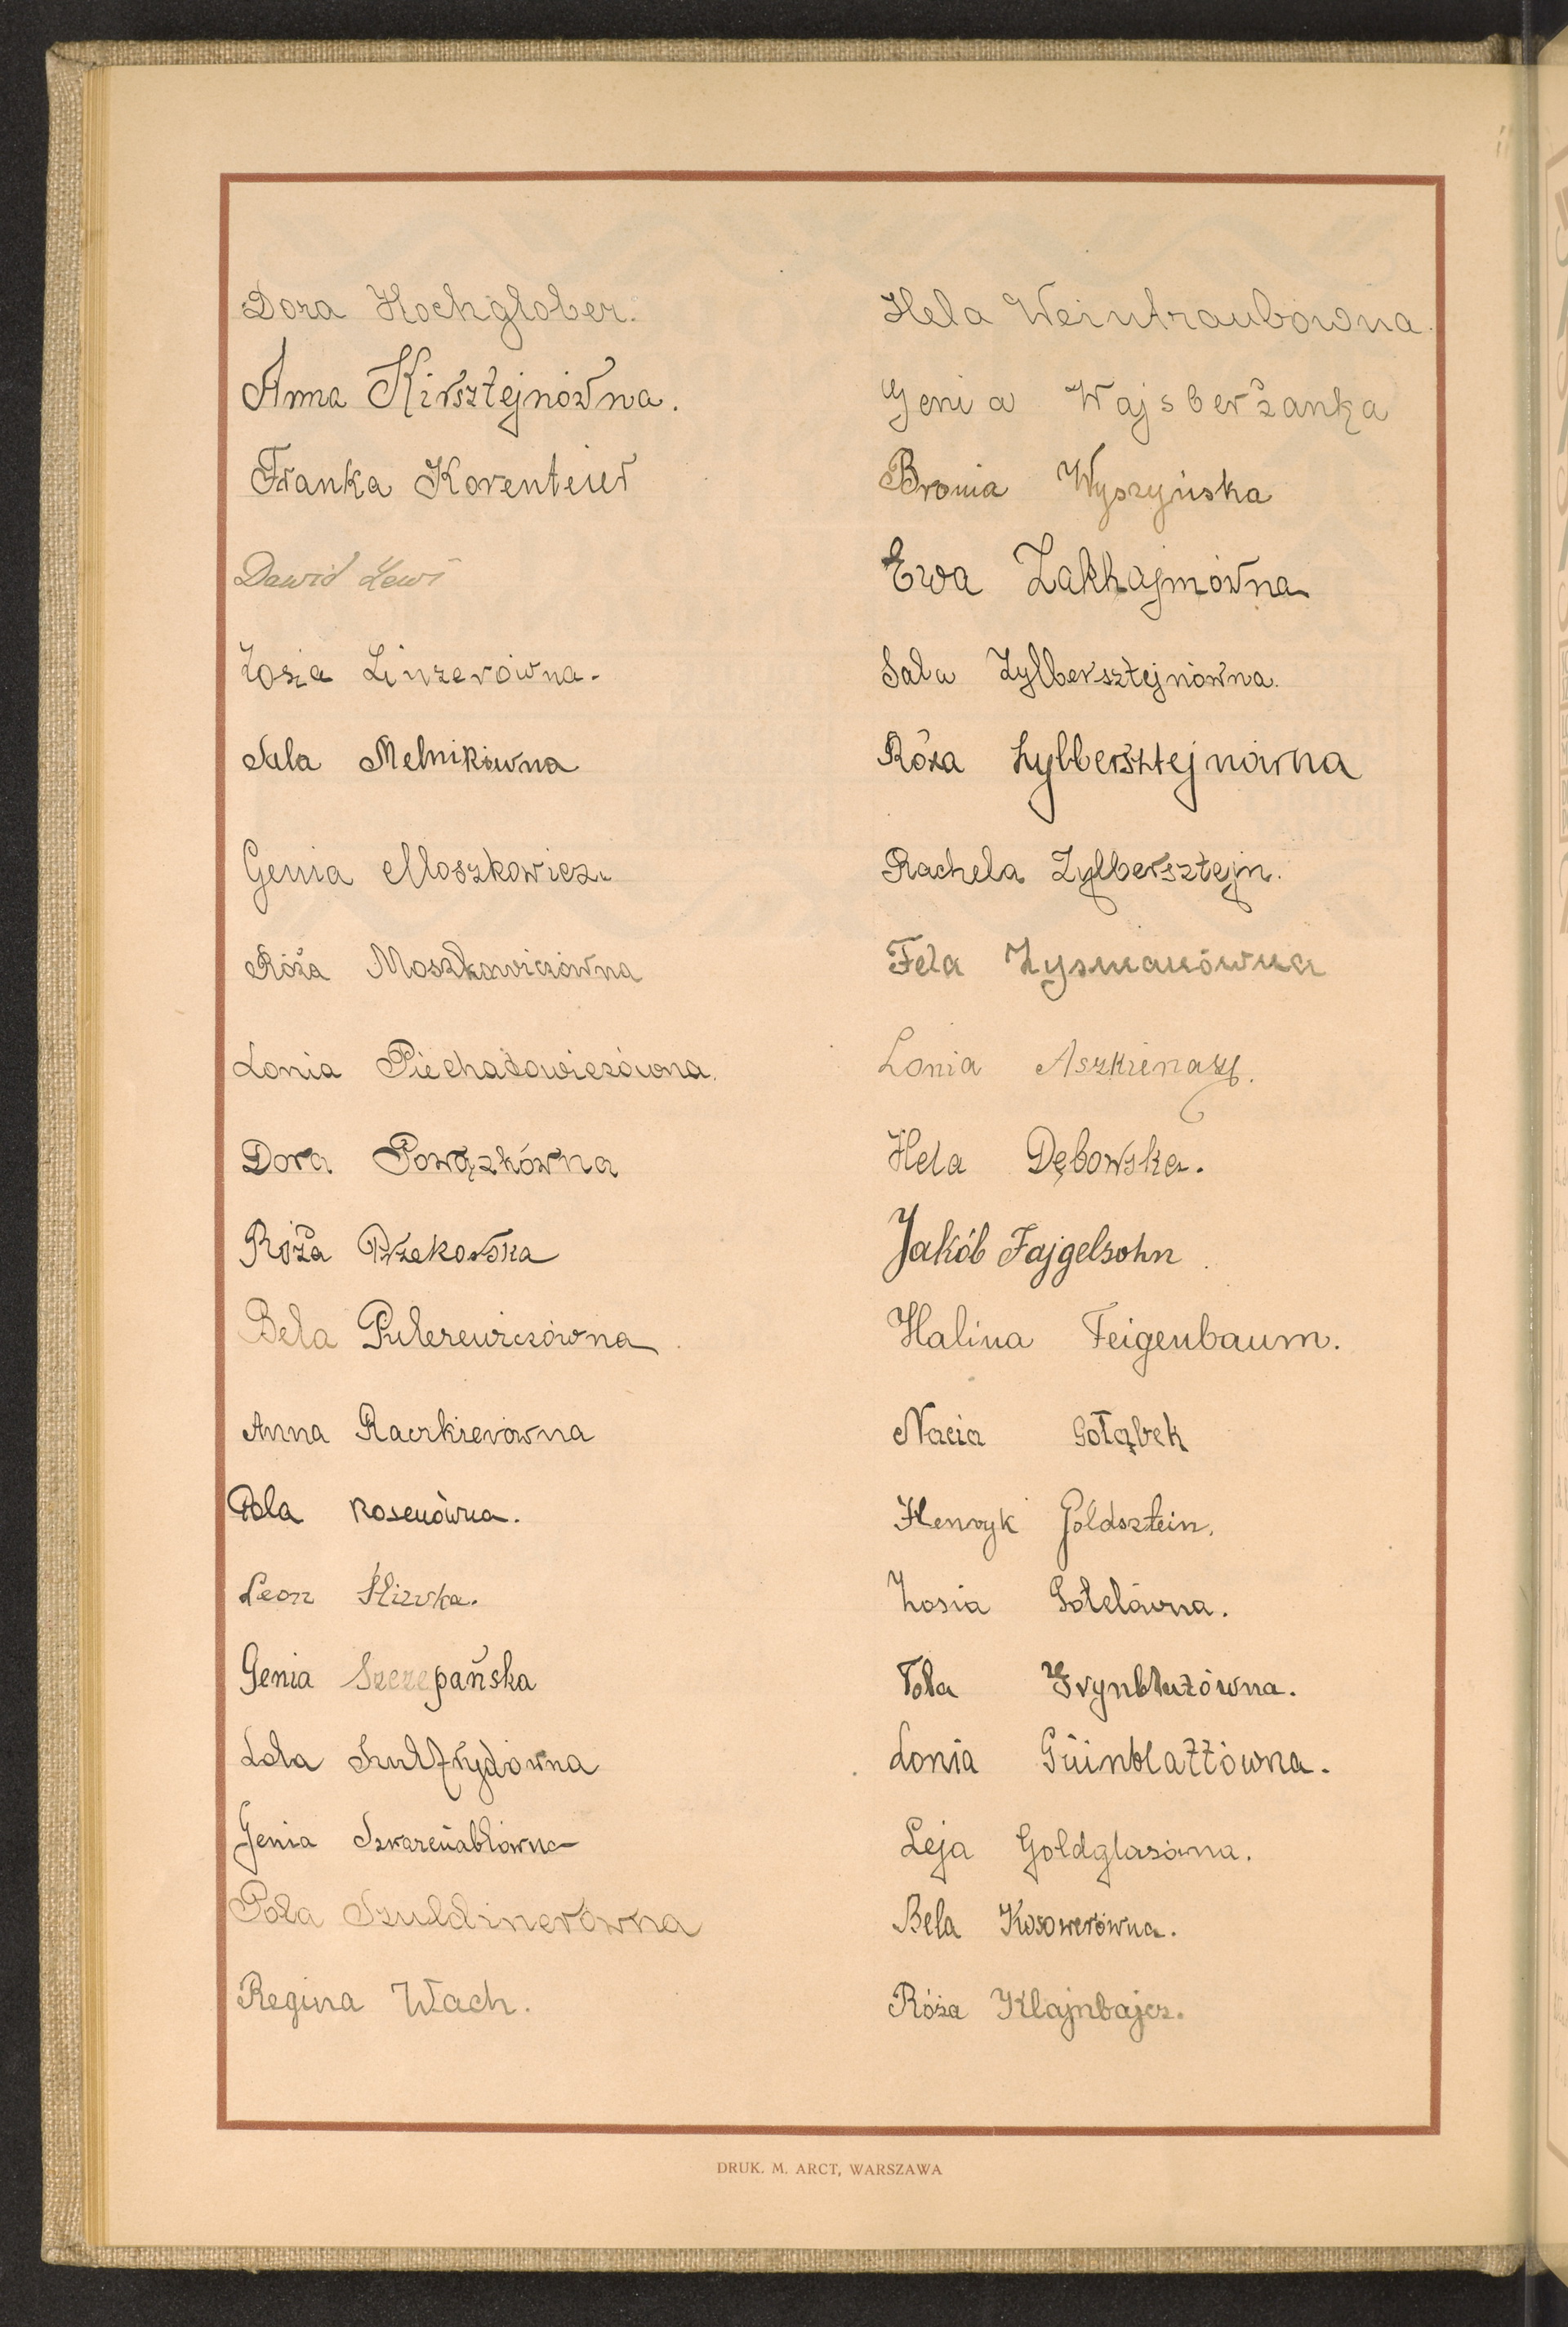 Dora Hochglober.
Anna Kirsztejnówna.
Franka Korenteier
Dawid Lewi
Zosia Linzerówna.
Sala Melnikówna
Genia Moszkowicz.
Róża Moszkowiczówna
Lonia Piechadowiczówna.
Dora Powązkówna
Róża Przekowska
Bela Pulerewiczówna
Anna Raczkierówna
Pola Rosenówna.
Leon Śliwka.
Genia Szczepańska
Lola Szulfrydówna
Genia Szwarcnablówna
Pola Szuldinerówna
Regina Wach.
Hela Weintraubówna.
Genia Wajsberżanka
Bronia Wyszyńska
Ewa Zakhajmówna
Sala Zylbersztejnówna.
Róża Zylbersztejnówna
Rachela Zylbersztejn.
Fela Zysmanówna
Lonia Aszkienazy.
Hela Dębowska.
Jakób Fajgelsohn
Halina Feigenbaum.
Nacia Gołąbek
Henryk Goldsztein.
Zosia Gotelówna.
Tola Grynblatówna.
Lonia Grünblattówna.
Leja Goldglasówna.
Bela Kosowerówna.
Róża Klajnbajcz.
DRUK. M. ARCT, WARSZAWA